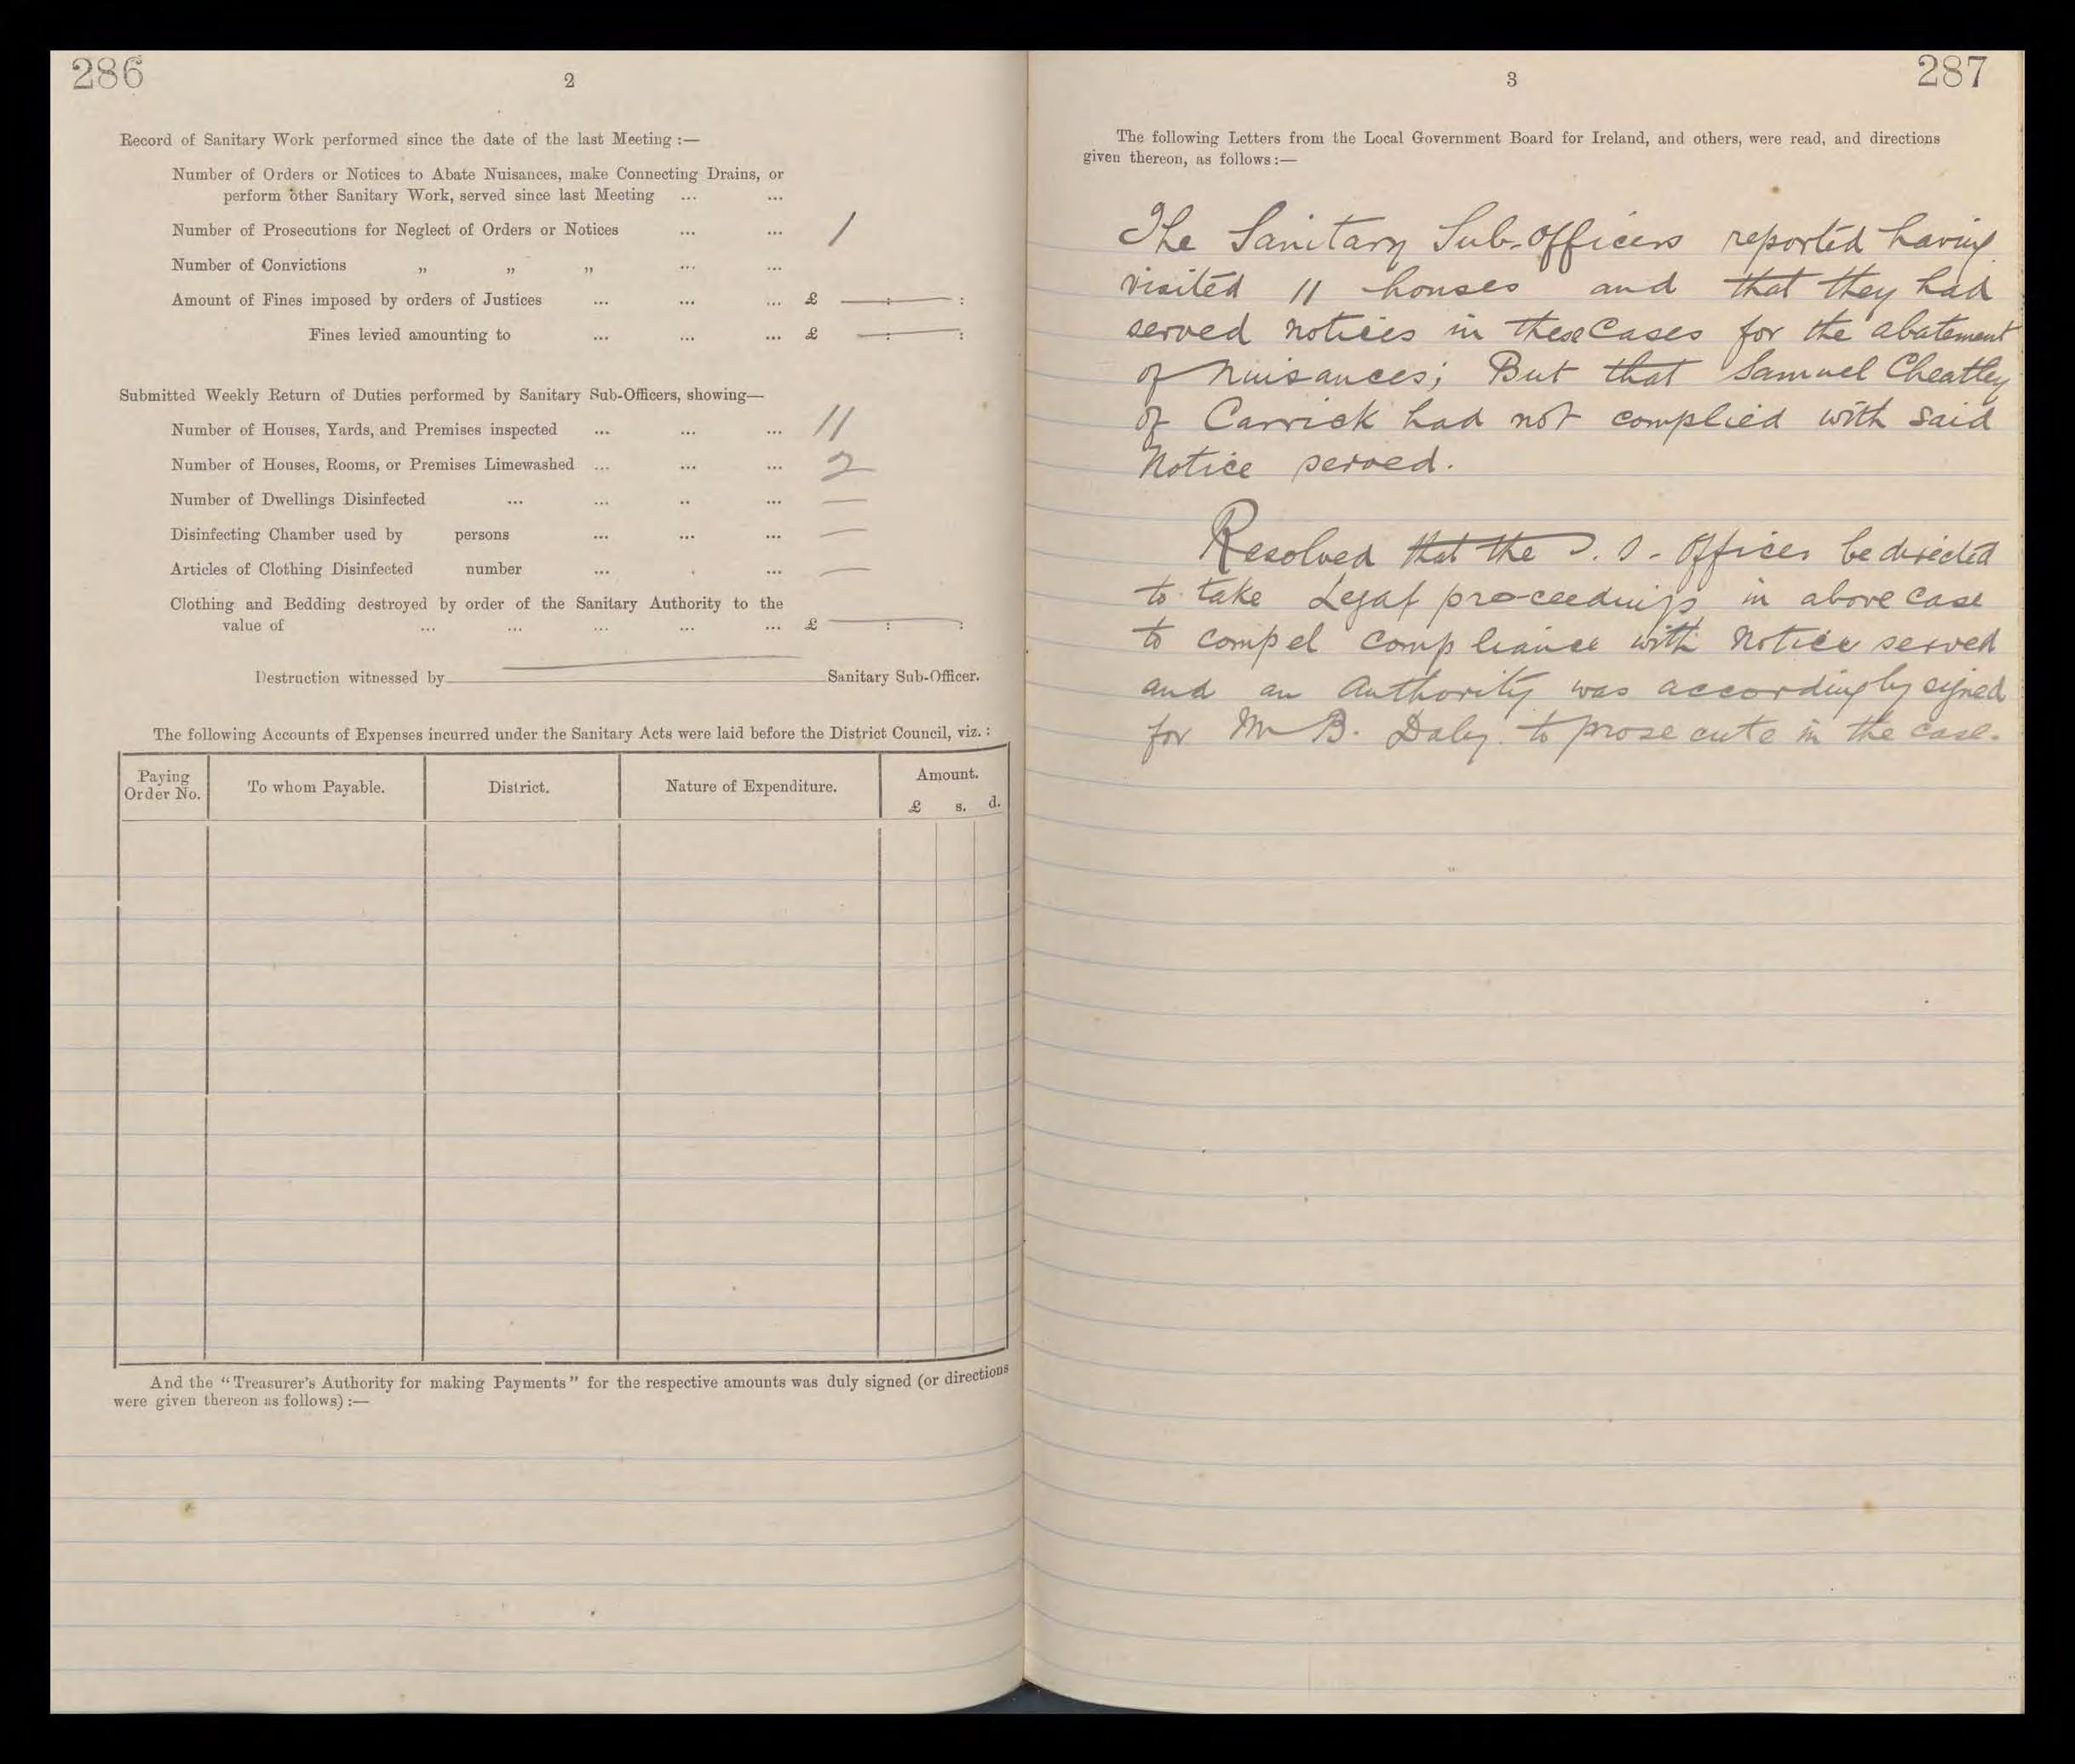 286
2
Record of Sanitary Work performed since the date of the last Meeting :—
Number of Orders or Notices to Abate Nuisances, make Connecting Drains, or
perform other Sanitary Work, served since last Meeting ... ...
Number of Prosecutions for Neglect of Orders or Notices ... ... 1
Number of Convictions „ „ „ ... ...
Amount of Fines imposed by orders of Justices ... ... ... £ — : — :
Fines levied amounting to ... ... ... £ — : — :
Submitted Weekly Return of Duties performed by Sanitary Sub-Officers, showing—
Number of Houses, Yards, and Premises inspected ... ... ... 11
Number of Houses, Rooms, or Premises Limewashed ... ... ... 2
Number of Dwellings Disinfected ... ... .. ... —
Disinfecting Chamber used by persons ... ... ... —
Articles of Clothing Disinfected number ... . ... —
Clothing and Bedding destroyed by order of the Sanitary Authority to the
value of ... ... ... ... ... £ — : — :
Destruction witnessed by Sanitary Sub-Officer.
The following Accounts of Expenses incurred under the Sanitary Acts were laid before the District Council, viz. :
Paying Order No. To whom Payable. District. Nature of Expenditure. Amount.
£ s. d.
And the "Treasurer's Authority for making Payments" for the respective amounts was duly signed (or directions
were given thereon as follows) :—
3
287
The following Letters from the Local Government Board for Ireland, and others, were read, and directions
given thereon, as follows :—
The Sanitary Sub-Officers reported having
visited 11 houses and that they had
served notices in these Cases for the abatement
of Nuisances; But that Samuel Cheatley
of Carrick had not complied with said
Notice served.
Resolved that the S. S. Officer be directed
to take Legal proceedings in above case
to compel compliance with Notice served
and an Authority was accordingly signed
for Mr B. Daly to prosecute in the case.